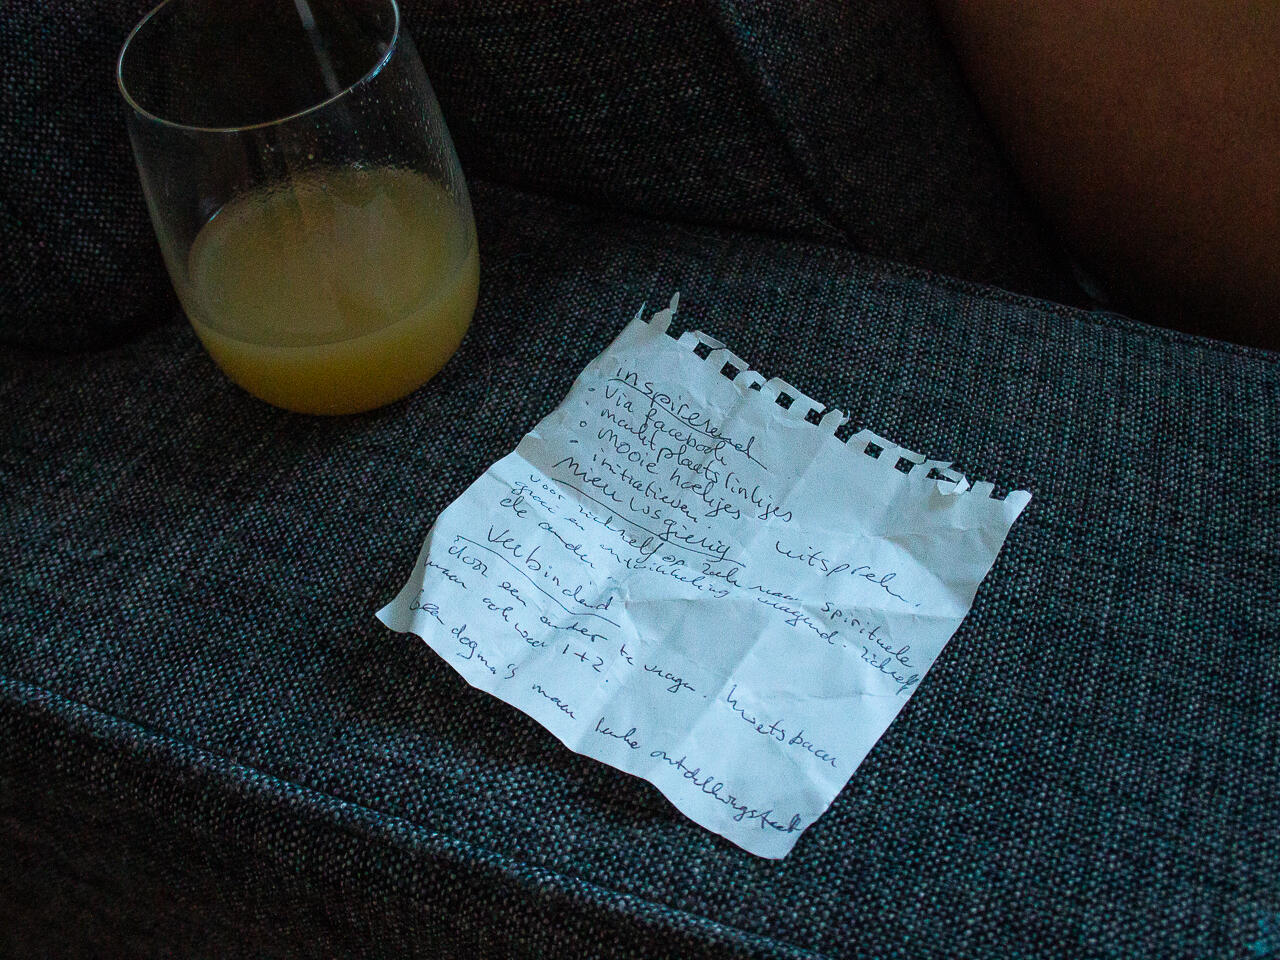 inspirerend
• Via facebook
• marktplaats linkjes
• mooie hoekjes
• initiatieven. uitspreken.
Nieuwsgierig
voor zichzelf op zoek naar spirituele
groei en ontwikkeling zichzelf
de ander
Verbindend
door een ander te vragen. kwetsbaar
maar ook 1+2!
Geen dogma's maar leuke ontdekkingstocht